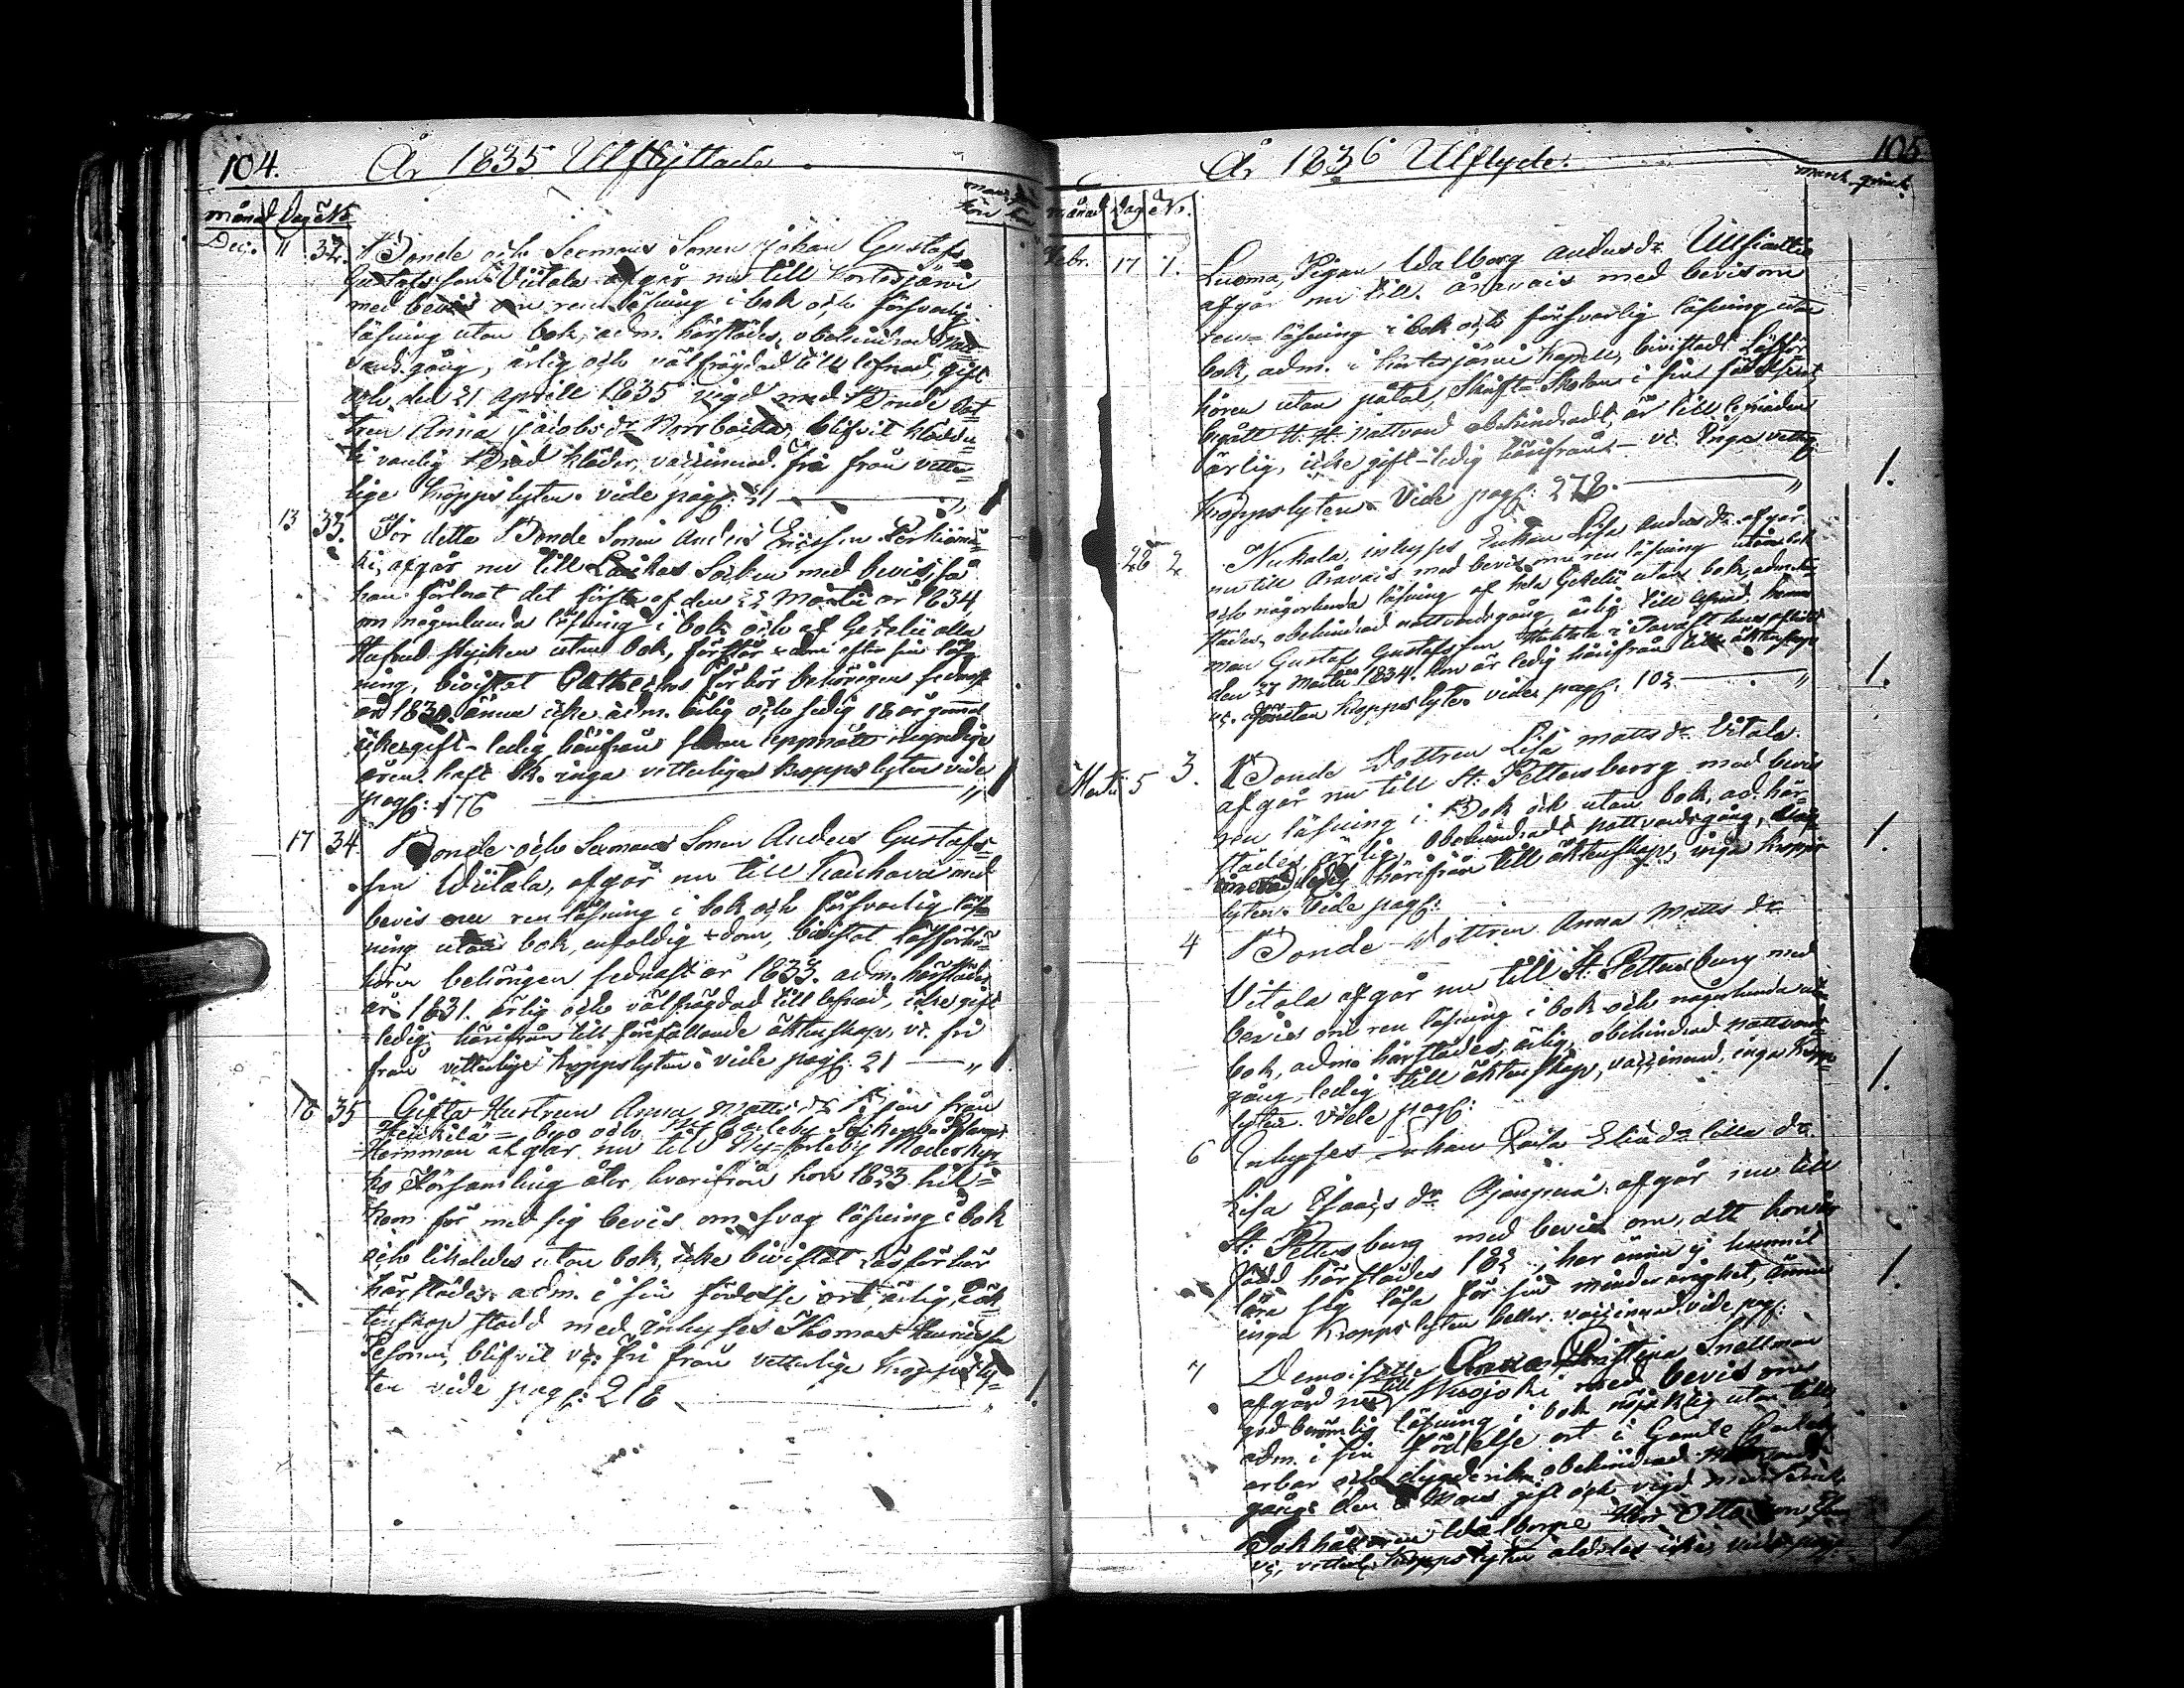 104. År 1835 Utflyttade
månad Dag No
Dec. 11 32. Bonde och Sexmans Sonen Johan Gustafs=
Gustafsson Viitala afgår nu till Kortesjärvi
med bevis om ren läsning i bok och försvarlig
läsning utan bok, adm. härstädes, obehindrad natt=
vards gång, ärlig och välfrägdad till lefnad, gift
och den 21 aprill 1835 vigd med Bonde dot=
tren Anna Jacobsdr Norrbacka, blifvit klädd
i vanlig Brud kläder, vaccinerad. fri från vetter=
lige kroppslyten. vide pag: 21
13 33. För detta Bonde Sonen Anders Ericsson
ki, afgår nu till Socken med bevis, så
han förlorat det första af den 22 Martii år 1834,
om någorlunda läsning i bok och af Gezelii alla
Hufvud stycken utan bok, förstår
ning, bivistat förhör behörigen sednast
år 1834. ännu icke adm. ärlig och sedig 18 år gammal
icke gift - ledig härifrån sedan uppnått myndige
åren. haft k. inga vetterligen kroppslyten vide
pag: 176
17 34. Bonde och Sexmans Sonen Anders Gustafs=
son Wiitala, afgår nu till Kauhava med
bevis om ren läsning i bok och försvarlig läs=
ning utan bok, enfaldig +dom, bivistat läsförhö=
hören behörigen sednast år 1833. adm. härstädes
år 1831. ärlig och välfrägdad till lefnad, icke gift
- ledig härifrån till förefallande äktenskap, vc. fri
från vetterlige kroppslyten. vide pag: 21
18 35 Gifta Hustrun Anna Mattsdr från
Heikilä= byo och Ny Carleby Socken
Hemman afgår nu till Ny=Carleby Moderkyr=
ko Församling åter, hvarifrån hon 1833 hit=
kom får med sig bevis om svag läsning i bok
och likaledes utan bok, icke bivistat Läsförhör
härstädes. adm. i sin födelse ort, ärlig, i äk=
tenskap stadd med inhyses Thomas Henricss.
blifvit vc. fri från vetterlige kroppsly=
ten vide pag: 218

År 1836 Utflyttde. 105
mank. qvink.
månad Dag No.
Febr. 17 1. Luoma, Pigan Walborg Andersdr
afgår nu till Oravais med bevis om
ren läsning i bok och försvarlig läsning utan
bok, adm. i Kortesjärvi Kapell, bivistadt Läsför=
hören utan påtal, Skrift=Skolan i sin födelseort,
begått H. H. nattvard obehindradt, är till lefnaden
ärlig, icke gift - ledig härifrån - vc. Inga vetterl.
Kroppslyten. Vide pag: 278. 1.
26 2 inhyses Enkan Lisa Andersdr afgår
nu till Oravais med bevis om ren läsning utan bok
och någorlunda läsning af hela Gezelii utan bok, adm. här=
städes, obehindrad nattvardsgång, ärlig till lefnad. hennes
man Gustaf Gustafsson i hus afled
den 27 Martii 1834. hon är ledig härifrån till äktenskap
vc. kroppslyte. vide pag: 102 1.
Martii 5 3. Bonde Dottren Lisa Mattsdr Vitala
afgår nu till St: Pettersborg med bevis
ren läsning i Bok och utan bok, ad. här=
städes, ärlig, obehindradt nattvardsgång,
ledig härifrån till äktenskap, inga kropps 1.
lyten. Vide pag:
4 Bonde Dottren Anna Matts dr
Vitala afgår nu till St: Pettersburg med
bevis om ren läsning i bok och någorlunda utan
bok, adm. härstädes, ärlig, obehindrad nattvards=
gång, ledig till äktenskap, vaccinerad, inga kropps= 1.
lyten. vide pag:
6 Inhyses Enkan Elia dr lilla dr.
Lisa Isaacs dr afgår nu till
St: Pettersburg med bevis om, att hon är
född härstädes 182 , har ännu ej hunnit
lära sig läsa för sin minderårighet, ännu 1.
inga kroppslyten heller. vaccinerad. vide pag:
7 Demoiselle Christina Snellman
afgård nu till med bevis om
god berömlig läsning i bok utan till,
adm. i sin födelse ort i Gamle Carleby
ärbar och dygderik obehindrad nattvards
gång. den Mars gift och vigd med
Bokhållaren Otto
vc. vetterl. kroppslyten aldeles icke, vide pag: